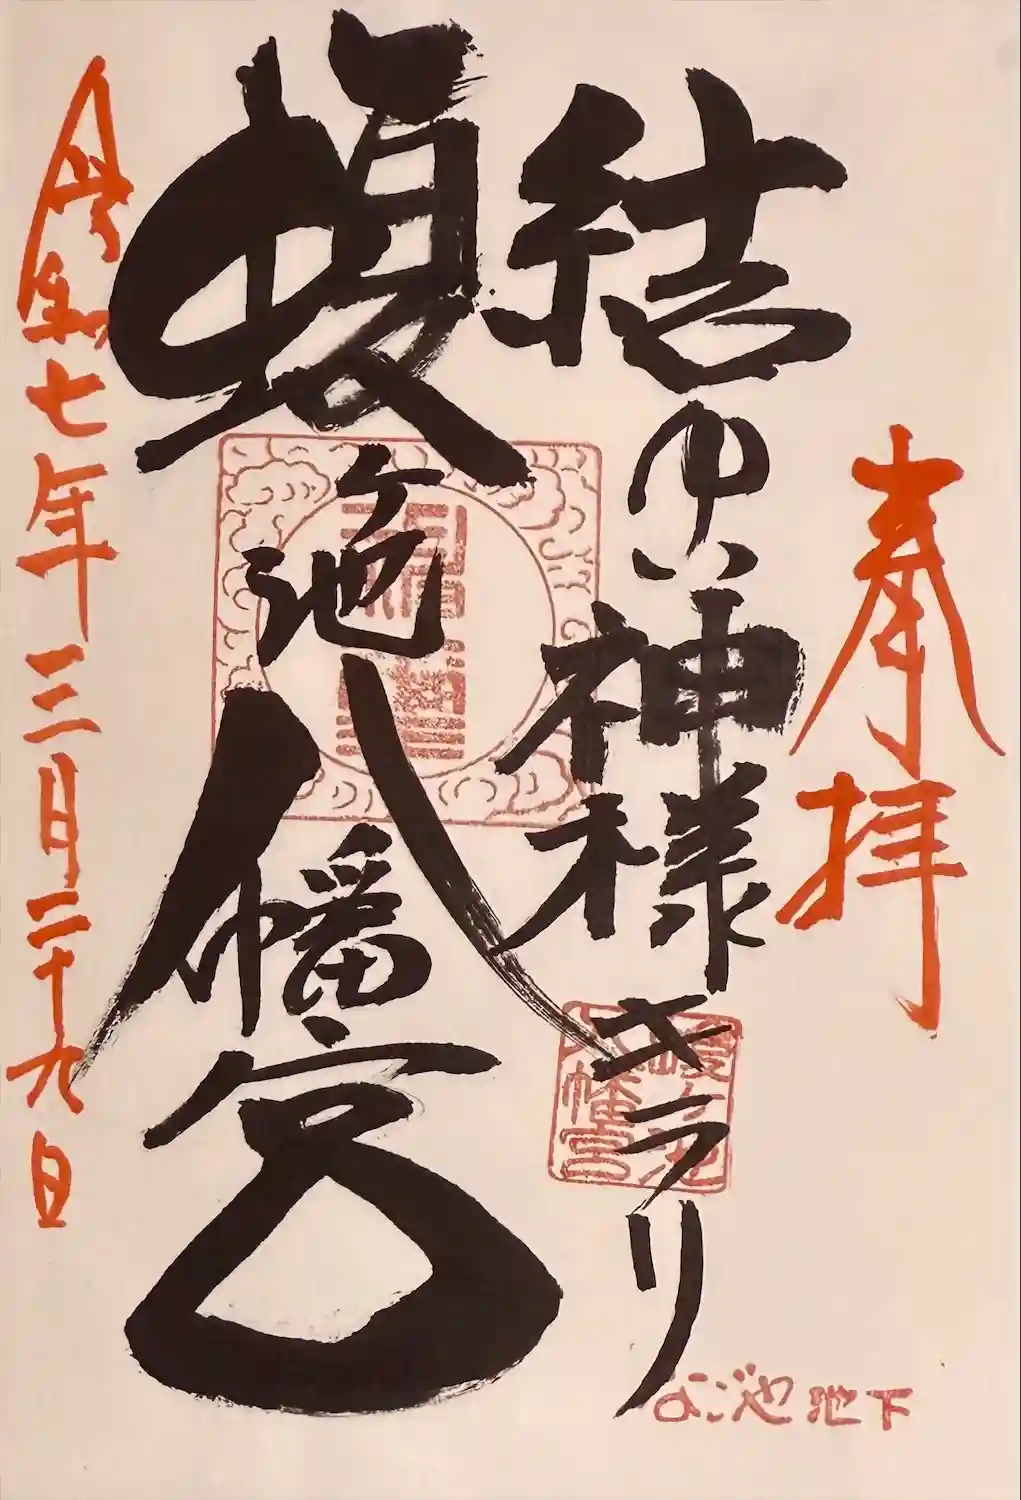 奉拝
結ゆい神様キラリ
蝮ヶ池八幡宮
令和七年三月二十九日
蝮ヶ池
八幡宮
池下